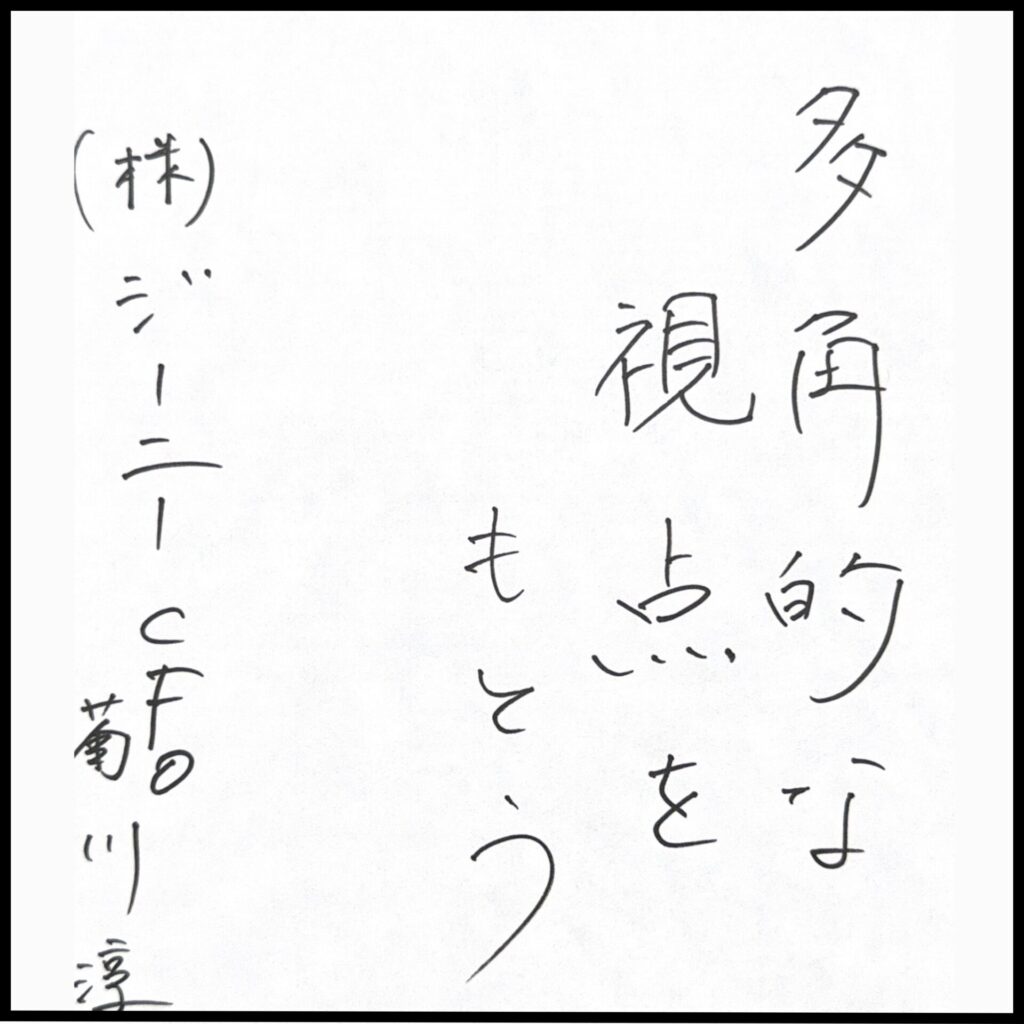 多角的な
視点を
もとう
(株)ジーニー CFO
菊川淳